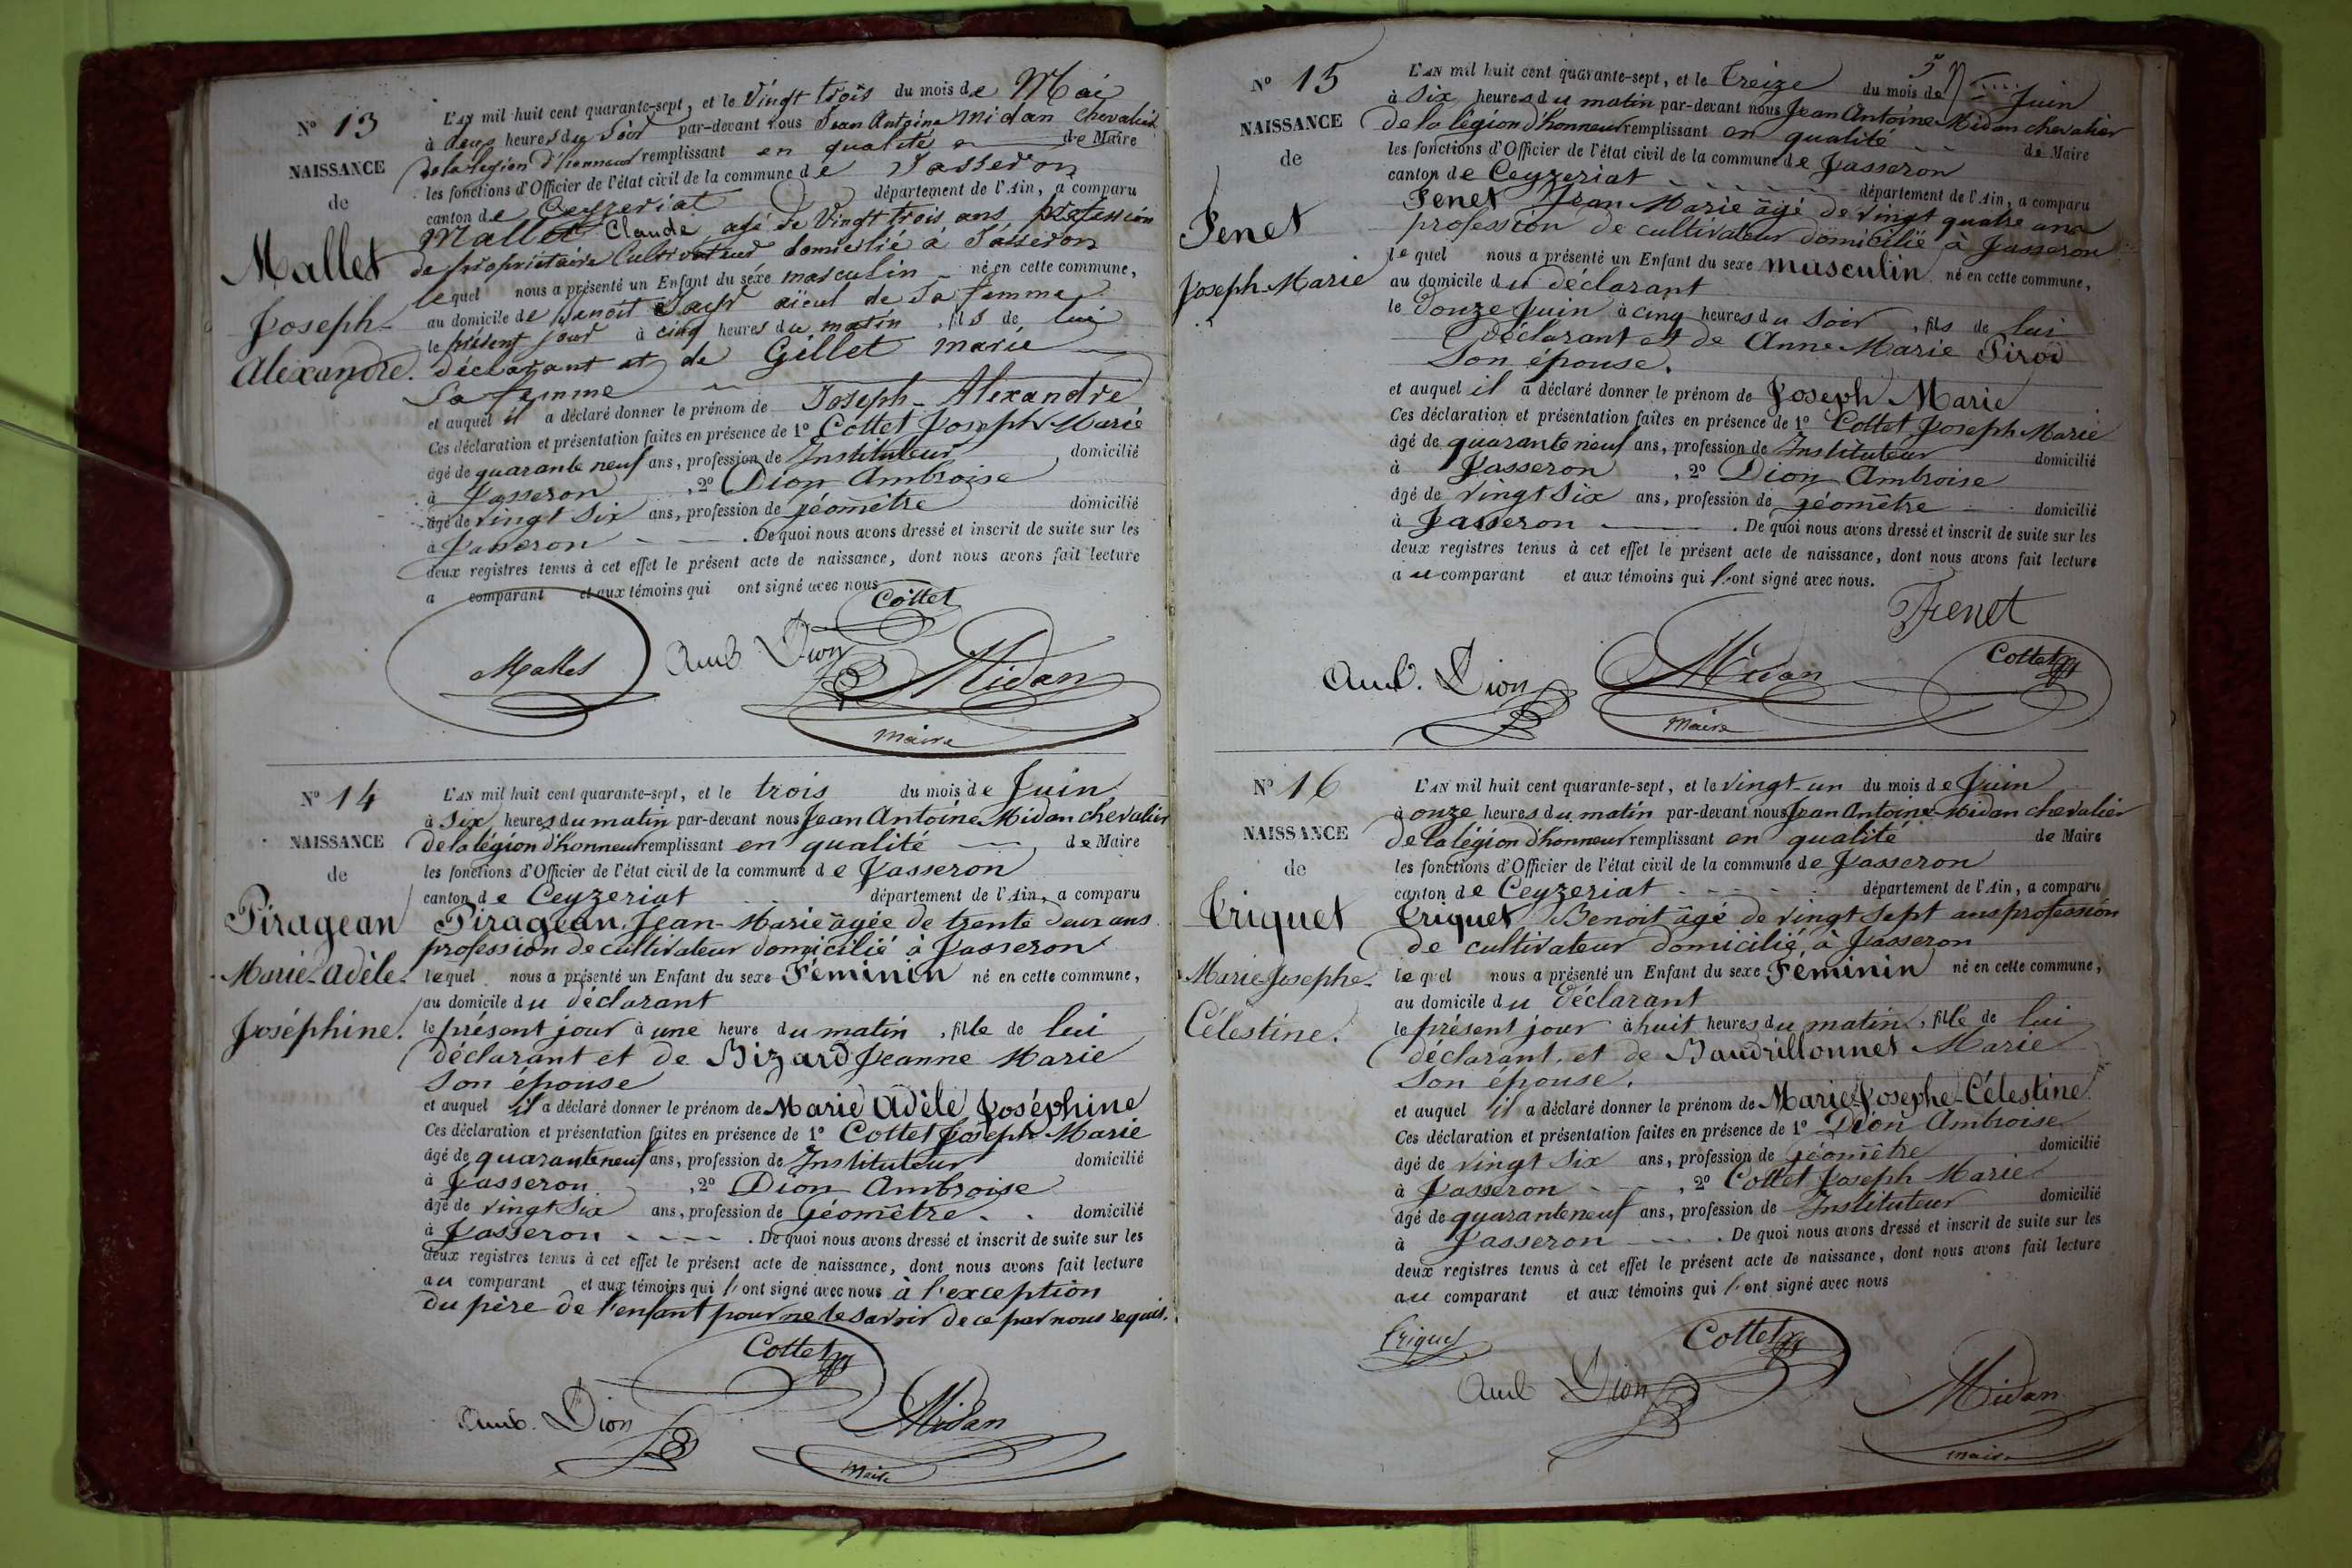 N° 13
NAISSANCE
de
Mallet
Joseph-
Alexandre.
L'AN mil huit cent quarante-sept, et le vingt trois du mois de Mai
à deux heures du soir par-devant nous Jean Antoine Midan chevalier
de la légion d'honneur remplissant en qualité de Maire
les fonctions d'Officier de l'état civil de la commune de Jasseron
canton de Ceyzeriat département de l'Ain, a comparu
Mallet Claude, agé de Vingt trois ans, profession
de propriétaire Cultivateur domicilié à Jasseron
lequel nous a présenté un Enfant du sexe masculin né en cette commune,
au domicile de Benoit aïeul de Sa femme
le présent jour à cinq heures du matin, fils de lui
déclarant et de Gillet marie
Sa femme
et auquel il a déclaré donner le prénom de Joseph-Alexandre
Ces déclaration et présentation faites en présence de 1° Cottet Joseph Marie
âgé de quarante neuf ans, profession de Instituteur, domicilié
à Jasseron, 2° Dion Ambroise
âgé de vingt six ans, profession de géomètre domicilié
à Jasseron. De quoi nous avons dressé et inscrit de suite sur les
deux registres tenus à cet effet le présent acte de naissance, dont nous avons fait lecture
a comparant et aux témoins qui ont signé avec nous
Cottet
Mallet Amb Dion Midan
maire
N° 14
NAISSANCE
de
Piragean
Marie-adèle-
Joséphine.
L'AN mil huit cent quarante-sept, et le trois du mois de Juin
à six heures du matin par-devant nous Jean Antoine Midan chevalier
de la légion d'honneur remplissant en qualité de Maire
les fonctions d'Officier de l'état civil de la commune de Jasseron
canton de Ceyzeriat département de l'Ain, a comparu
Piragean Jean-Marie âgée de trente deux ans
profession de cultivateur domicilié à Jasseron
lequel nous a présenté un Enfant du sexe Féminin né en cette commune,
au domicile du déclarant
le présent jour à une heure du matin, fille de lui
déclarant et de Bizard Jeanne Marie
son épouse
et auquel il a déclaré donner le prénom de Marie Adèle Joséphine
Ces déclaration et présentation faites en présence de 1° Cottet Joseph Marie
âgé de quarante neuf ans, profession de Instituteur domicilié
à Jasseron, 2° Dion Ambroise
âgé de vingt Six ans, profession de géomètre. domicilié
à Jasseron. De quoi nous avons dressé et inscrit de suite sur les
deux registres tenus à cet effet le présent acte de naissance, dont nous avons fait lecture
au comparant et aux témoins qui l'ont signé avec nous à l'exception
du père de l'enfant pour ne le savoir de ce par nous requis.
Cottet
Amb. Dion Midan
Maire
5
N° 15
NAISSANCE
de
Fenet
Joseph-Marie
L'AN mil huit cent quarante-sept, et le treize du mois de Juin
à six heures du matin par-devant nous Jean Antoine Midan chevalier
de la légion d'honneur remplissant en qualité de Maire
les fonctions d'Officier de l'état civil de la commune de Jasseron
canton de Ceyzeriat département de l'Ain, a comparu
Fenet Jean Marie âgé de vingt quatre ans
profession de cultivateur domicilié à Jasseron
lequel nous a présenté un Enfant du sexe masculin né en cette commune,
au domicile du déclarant
le douze Juin à cinq heures du soir, fils de lui
déclarant et de Anne Marie Piroi
son épouse.
et auquel il a déclaré donner le prénom de Joseph Marie
Ces déclaration et présentation faites en présence de 1° Cottet Joseph Marie
âgé de quarante neuf ans, profession de Instituteur domicilié
à Jasseron, 2° Dion Ambroise
âgé de vingt six ans, profession de géomètre domicilié
à Jasseron. De quoi nous avons dressé et inscrit de suite sur les
deux registres tenus à cet effet le présent acte de naissance, dont nous avons fait lecture
au comparant et aux témoins qui l'ont signé avec nous.
Fenet
Amb. Dion Midan Cottet
Maire
N° 16
NAISSANCE
de
Triquet
Marie Josephe-
Célestine.
L'AN mil huit cent quarante-sept, et le vingt-un du mois de Juin
à onze heures du matin par-devant nous Jean Antoine Midan chevalier
de la légion d'honneur remplissant en qualité de Maire
les fonctions d'Officier de l'état civil de la commune de Jasseron
canton de Ceyzeriat département de l'Ain, a comparu
Triquet Benoit âgé de vingt sept ans profession
de cultivateur domicilié à Jasseron
lequel nous a présenté un Enfant du sexe Féminin né en cette commune,
au domicile du déclarant
le présent jour à huit heures du matin, fille de lui
déclarant. et de Baudrillonnet Marie
son épouse.
et auquel il a déclaré donner le prénom de Marie Josephe-Célestine
Ces déclaration et présentation faites en présence de 1° Dion Ambroise
âgé de vingt six ans, profession de géomètre domicilié
à Jasseron, 2° Cottet Joseph Marie
âgé de quarante neuf ans, profession de Instituteur domicilié
à Jasseron. De quoi nous avons dressé et inscrit de suite sur les
deux registres tenus à cet effet le présent acte de naissance, dont nous avons fait lecture
au comparant et aux témoins qui l'ont signé avec nous
Triquet Cottet
Amb Dion Midan
maire